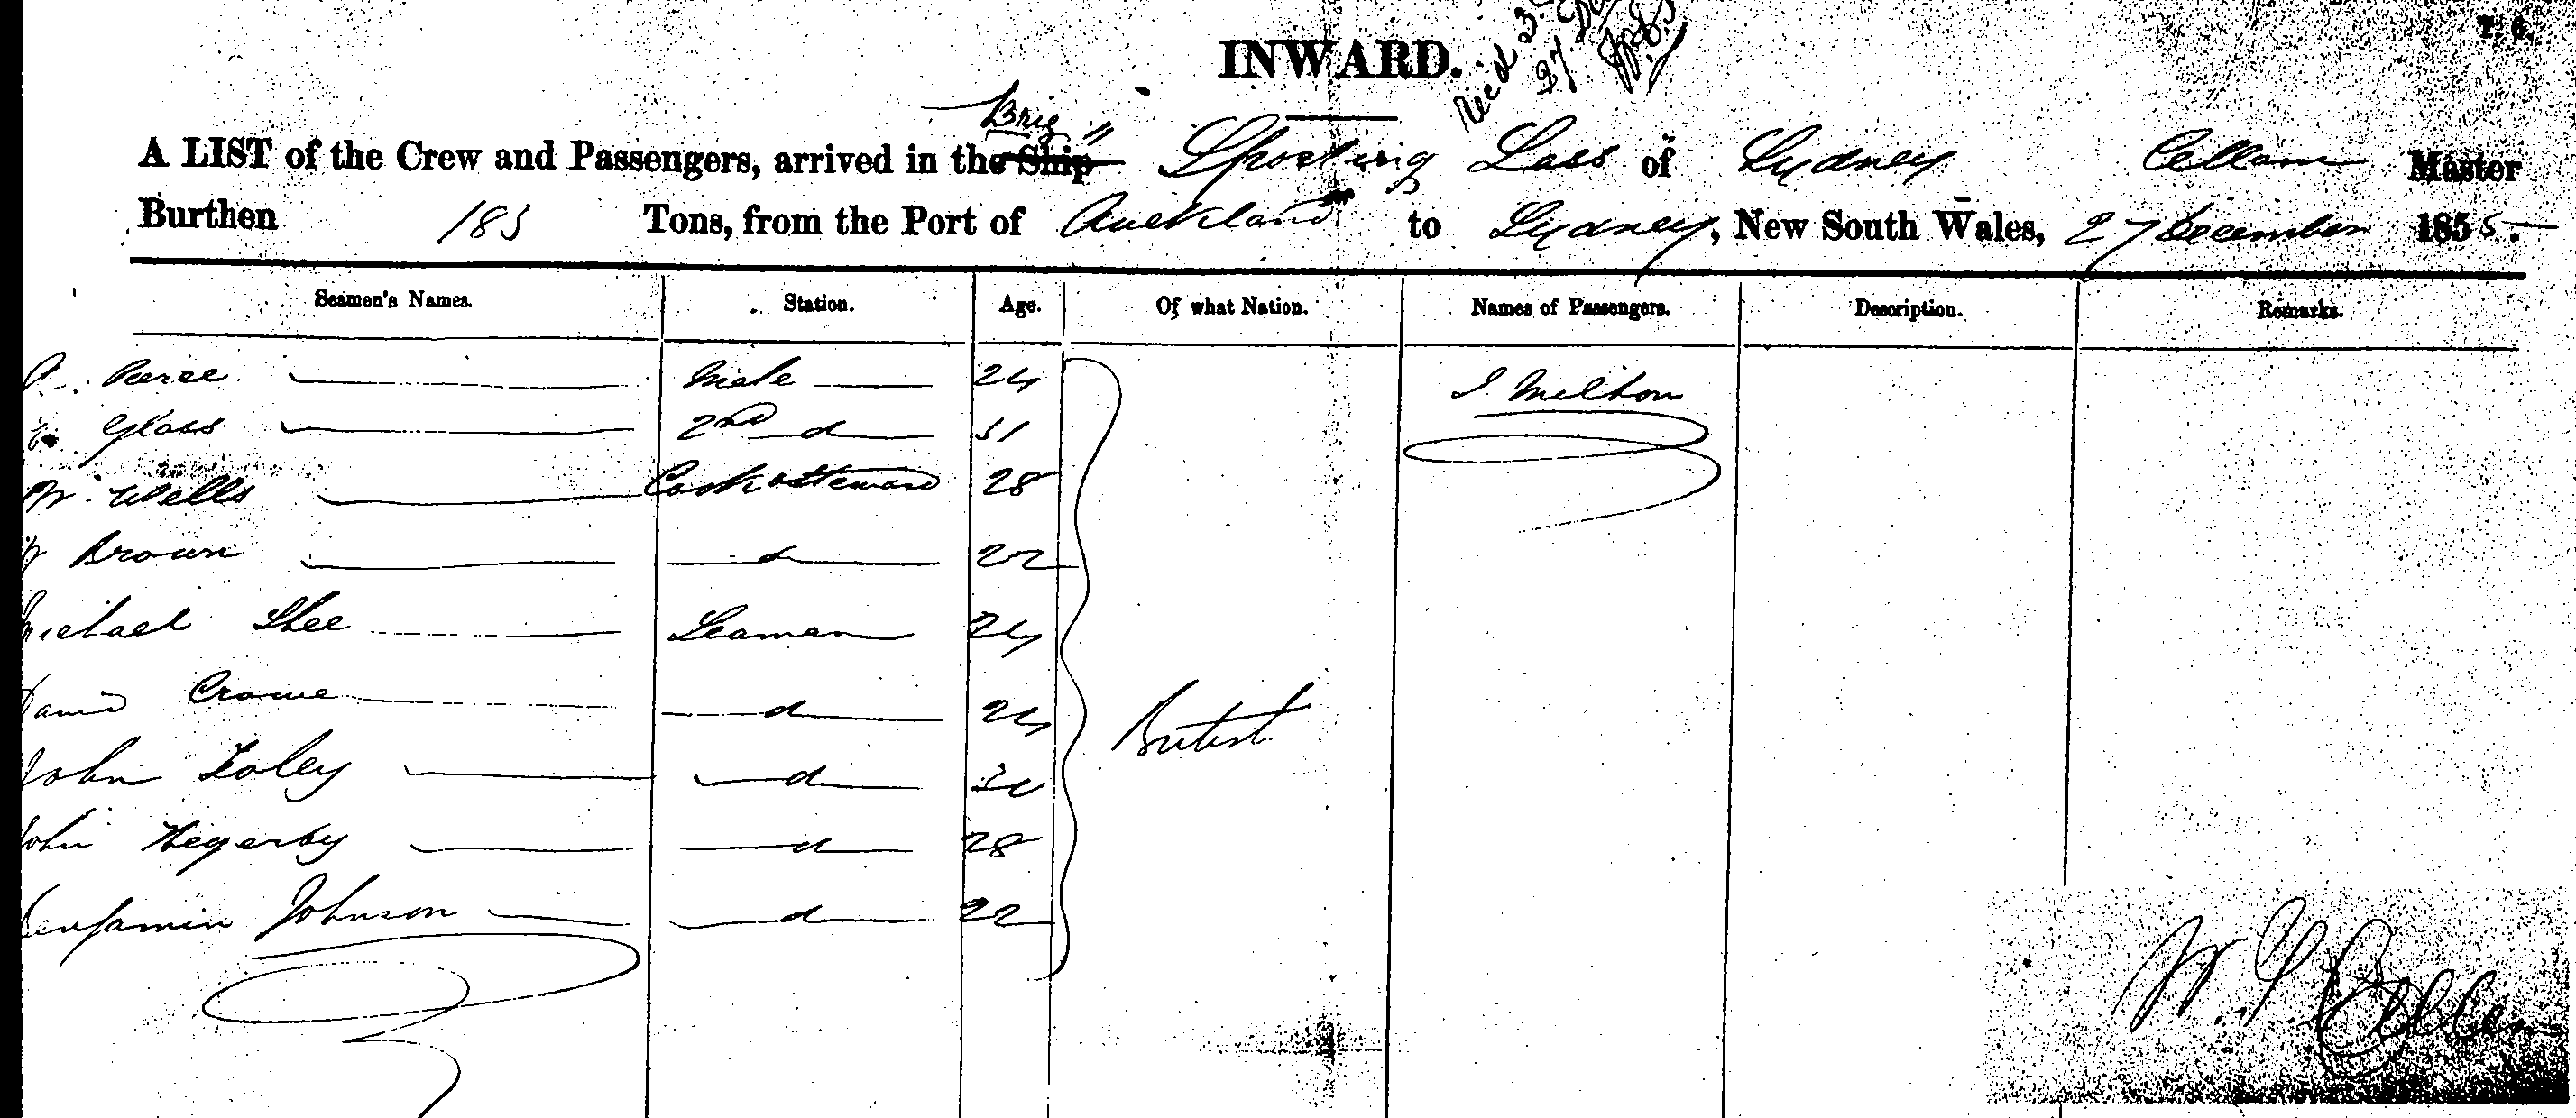 T. 6.
INWARD.
Brig "
A LIST of the Crew and Passengers, arrived in the Ship Sporting Lass of Sydney Cellam Master
Burthen 183 Tons, from the Port of Auckland to Sydney, New South Wales, 27 December 1855.
Seamen's Names. Station. Age. Of what Nation. Names of Passengers. Description. Remarks.
Pierce Mate 24 Melhon
Glass 2nd d 31
W. Wells Cook & Steward 28
Brown d 22
Michael Shee Seaman 24
David Crowe d 24
John Foley d 30
John Hegerby d 28
Benjamin Johnson d 22
British
W.